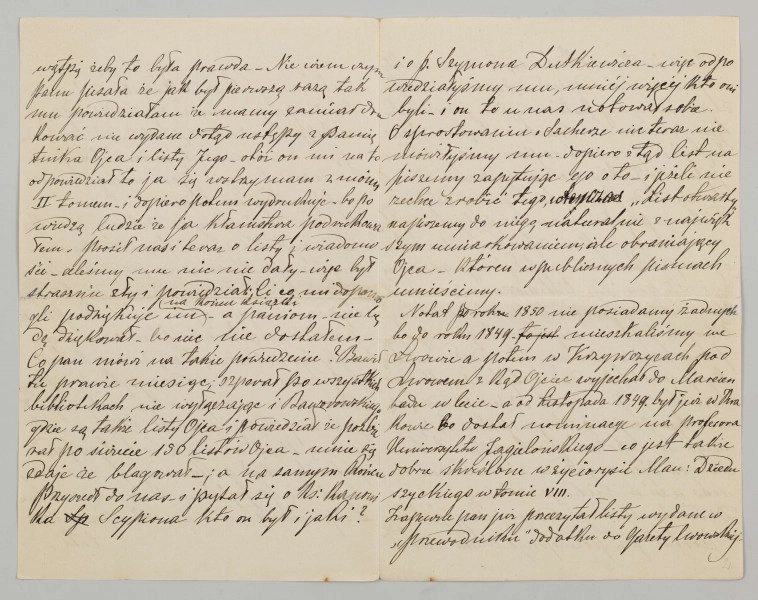 wątpię żeby to była prawda – Nie wiem czym
panu pisała że jak był pierwszą razą tak
mu powiedziałam że mamy zamiar dru
kować nie wydane dotąd ustępy z Pamię
tnika Ojca i listy Jego – otóż on mi na to
odpowiedział to ja się wstrzymam z moim
II tomem – i dopiero potem wydrukuję – bo po
wiedzą ludzie że ja kłamstwa podrutkowa
łem. Prosił nas i teraz o listy i wiadomo
ści – aleśmy mu nic nie dały – więc był
strasznie zły i powiedział, Ci co mi dopomo
na końcu książki
gli podziękuję im – a paniom – nie bę
dę dziękował – bo nic nie dostałem –
Co pan mówi na takie powiedzenie? Bawił
tu prawie miesiąc; szperał po wszystkich
bibliotekach nie wyłączając i Baworowskiego
gdzie są także listy Ojca i powiedział że pozbie
rał po świecie 130 listów Ojca – mnie się
zdaje że blagował –; a na samym końcu
Przyszedł do nas – i pytał się o Ks: Kanoni
ka Scypiona kto on był i jaki?
i o p. Szymona Dutkiewicza – więc odpo
wiedziałyśmy mu, mniéj więcéj kto oni
byli – i on to u nas notował sobie.
O sprostowaniu o Sacherze nic teraz nie
mówiłyśmy mu – dopiero ztąd list na
piszemy zapytując go o to – i jeżeli nie
zechce zrobić tego, „List otwarty"
napiszemy do niego, naturalnie z najwięk
szym umiarkowaniem, ale obraniający
Ojca – któren w publicznych pismach
umieścimy.
Notat po roku 1850 nie posiadamy żadnych
bo do roku 1849 to jest mieszkaliśmy we
Lwowie a potem w Krzywczycach pod
Lwowem z kąd Ojciec wyjechał do Marien
badu w lecie – a od listopada 1849. był już w Kra
kowie bo dostał nominacye na profesora
Uniwersytetu Jagielońskiego – co jest także
dobrze skreślone w życiorysie Mau: Dziedu
szyckiego w tomie VIII.
Zapewne pan już przeczytał listy wydane w
„Przewodniku" dodatku do Gazety lwowskiej.